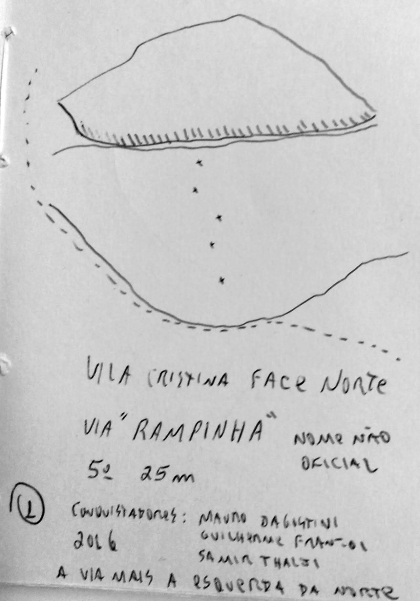 VILA CRISTINA FACE NORTE
VIA "RAMPINHA" NOME NÃO
5º 25m OFICIAL
CONQUISTADORES: MAURO
2016 GUILHERME
SAMIR
A VIA MAIS A ESQUERDA DA NORTE